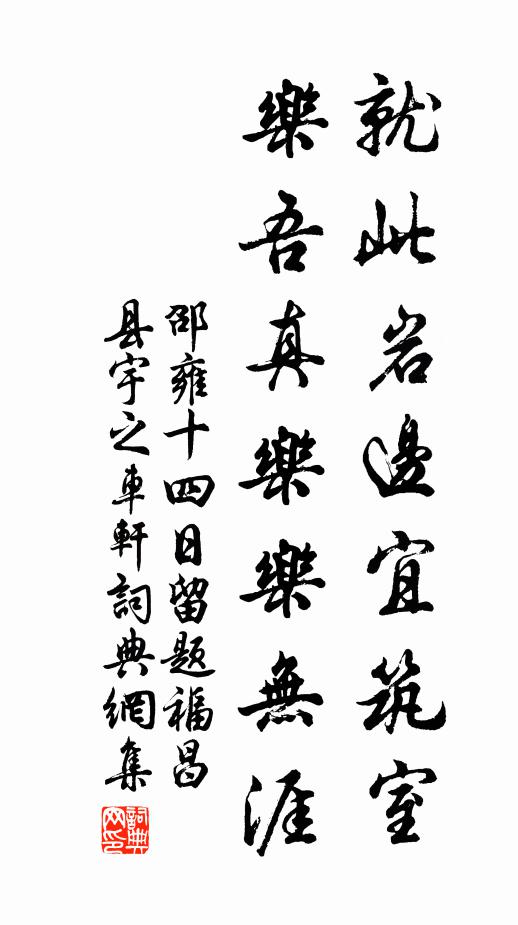 就此岩邊宜筑室
樂吾真樂樂無涯
邵雍十四日留题福昌
县宇之車軒詞典網集
詞典
网印